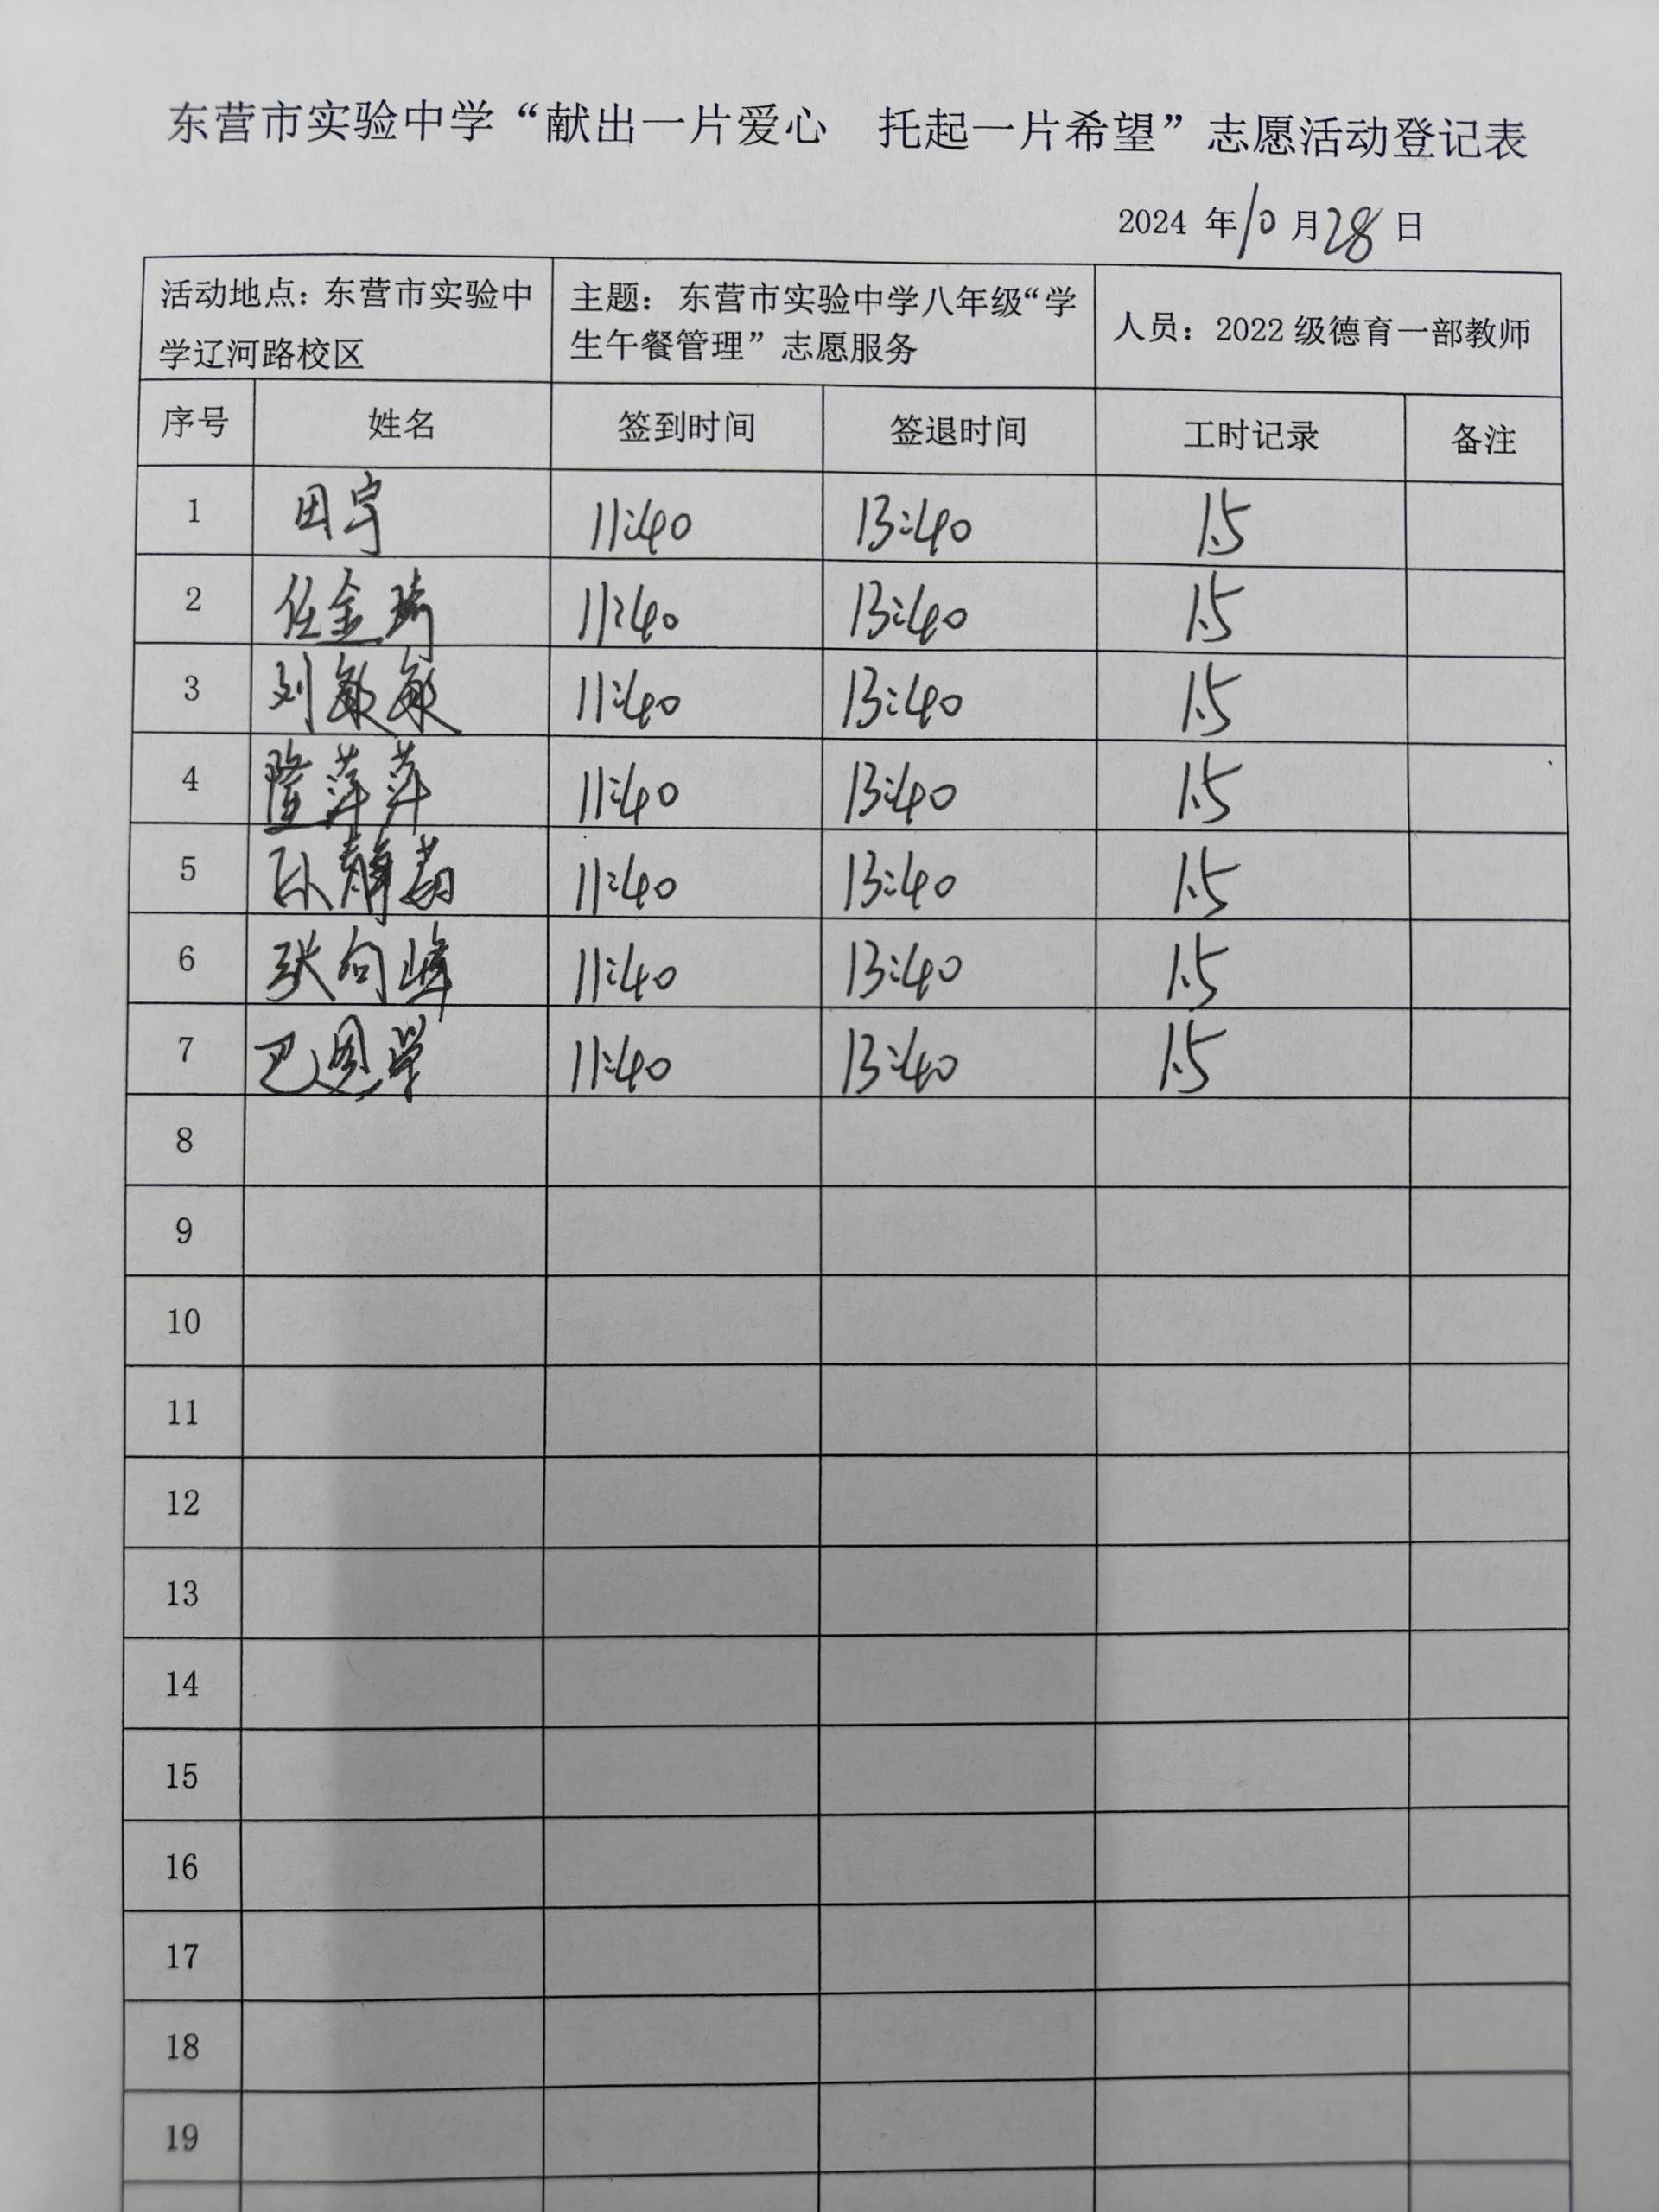 东营市实验中学“献出一片爱心 托起一片希望”志愿活动登记表
2024 年 10 月 28 日
活动地点：东营市实验中
学辽河路校区
主题：东营市实验中学八年级“学
生午餐管理”志愿服务
人员：2022 级德育一部教师
序号 姓名 签到时间 签退时间 工时记录 备注
1 田宇 11:40 13:40 1.5
2 任金琦 11:40 13:40 1.5
3 刘敏敏 11:40 13:40 1.5
4 隆萍萍 11:40 13:40 1.5
5 孙静茹 11:40 13:40 1.5
6 张向峰 11:40 13:40 1.5
7 巴恩学 11:40 13:40 1.5
8
9
10
11
12
13
14
15
16
17
18
19